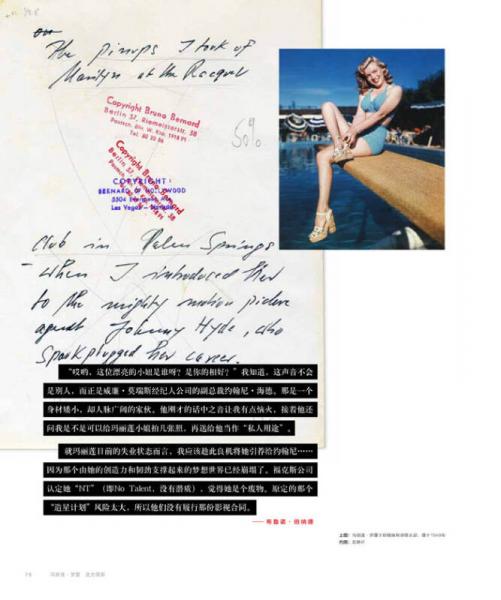 The pinups I took of
Marilyn at the Racquet
Copyright Bruno Bernard
Berlin 37, Riemeisterstr. 38
50%
COPYRIGHT:
BERNARD OF HOLLYWOOD
Las Vegas
Club in Palm Springs
- when I introduced her
to the mighty motion picture
agent Johnny Hyde, who
sparkplugged her career.
“哎哟，这位漂亮的小妞是谁呀？是你的相好？”我知道，这声音不会
是别人，而正是威廉·莫瑞斯经纪人公司的副总裁约翰尼·海德。那是一个
身材矮小，却人脉广阔的家伙。他刚才的话中之音让我有点恼火，接着他还
问我是不是可以给玛丽莲小姐拍几张照，再送给他当作“私人用途”。
就玛丽莲目前的失业状态而言，我应该趁此良机将她引荐给约翰尼……
因为那个由她的创造力和韧劲支撑起来的梦想世界已经崩塌了。福克斯公司
认定她“NT”（即No Talent，没有潜质），觉得她是个废物。原定的那个
“造星计划”风险太大，所以他们没有履行那份影视合同。
—— 布鲁诺·伯纳德